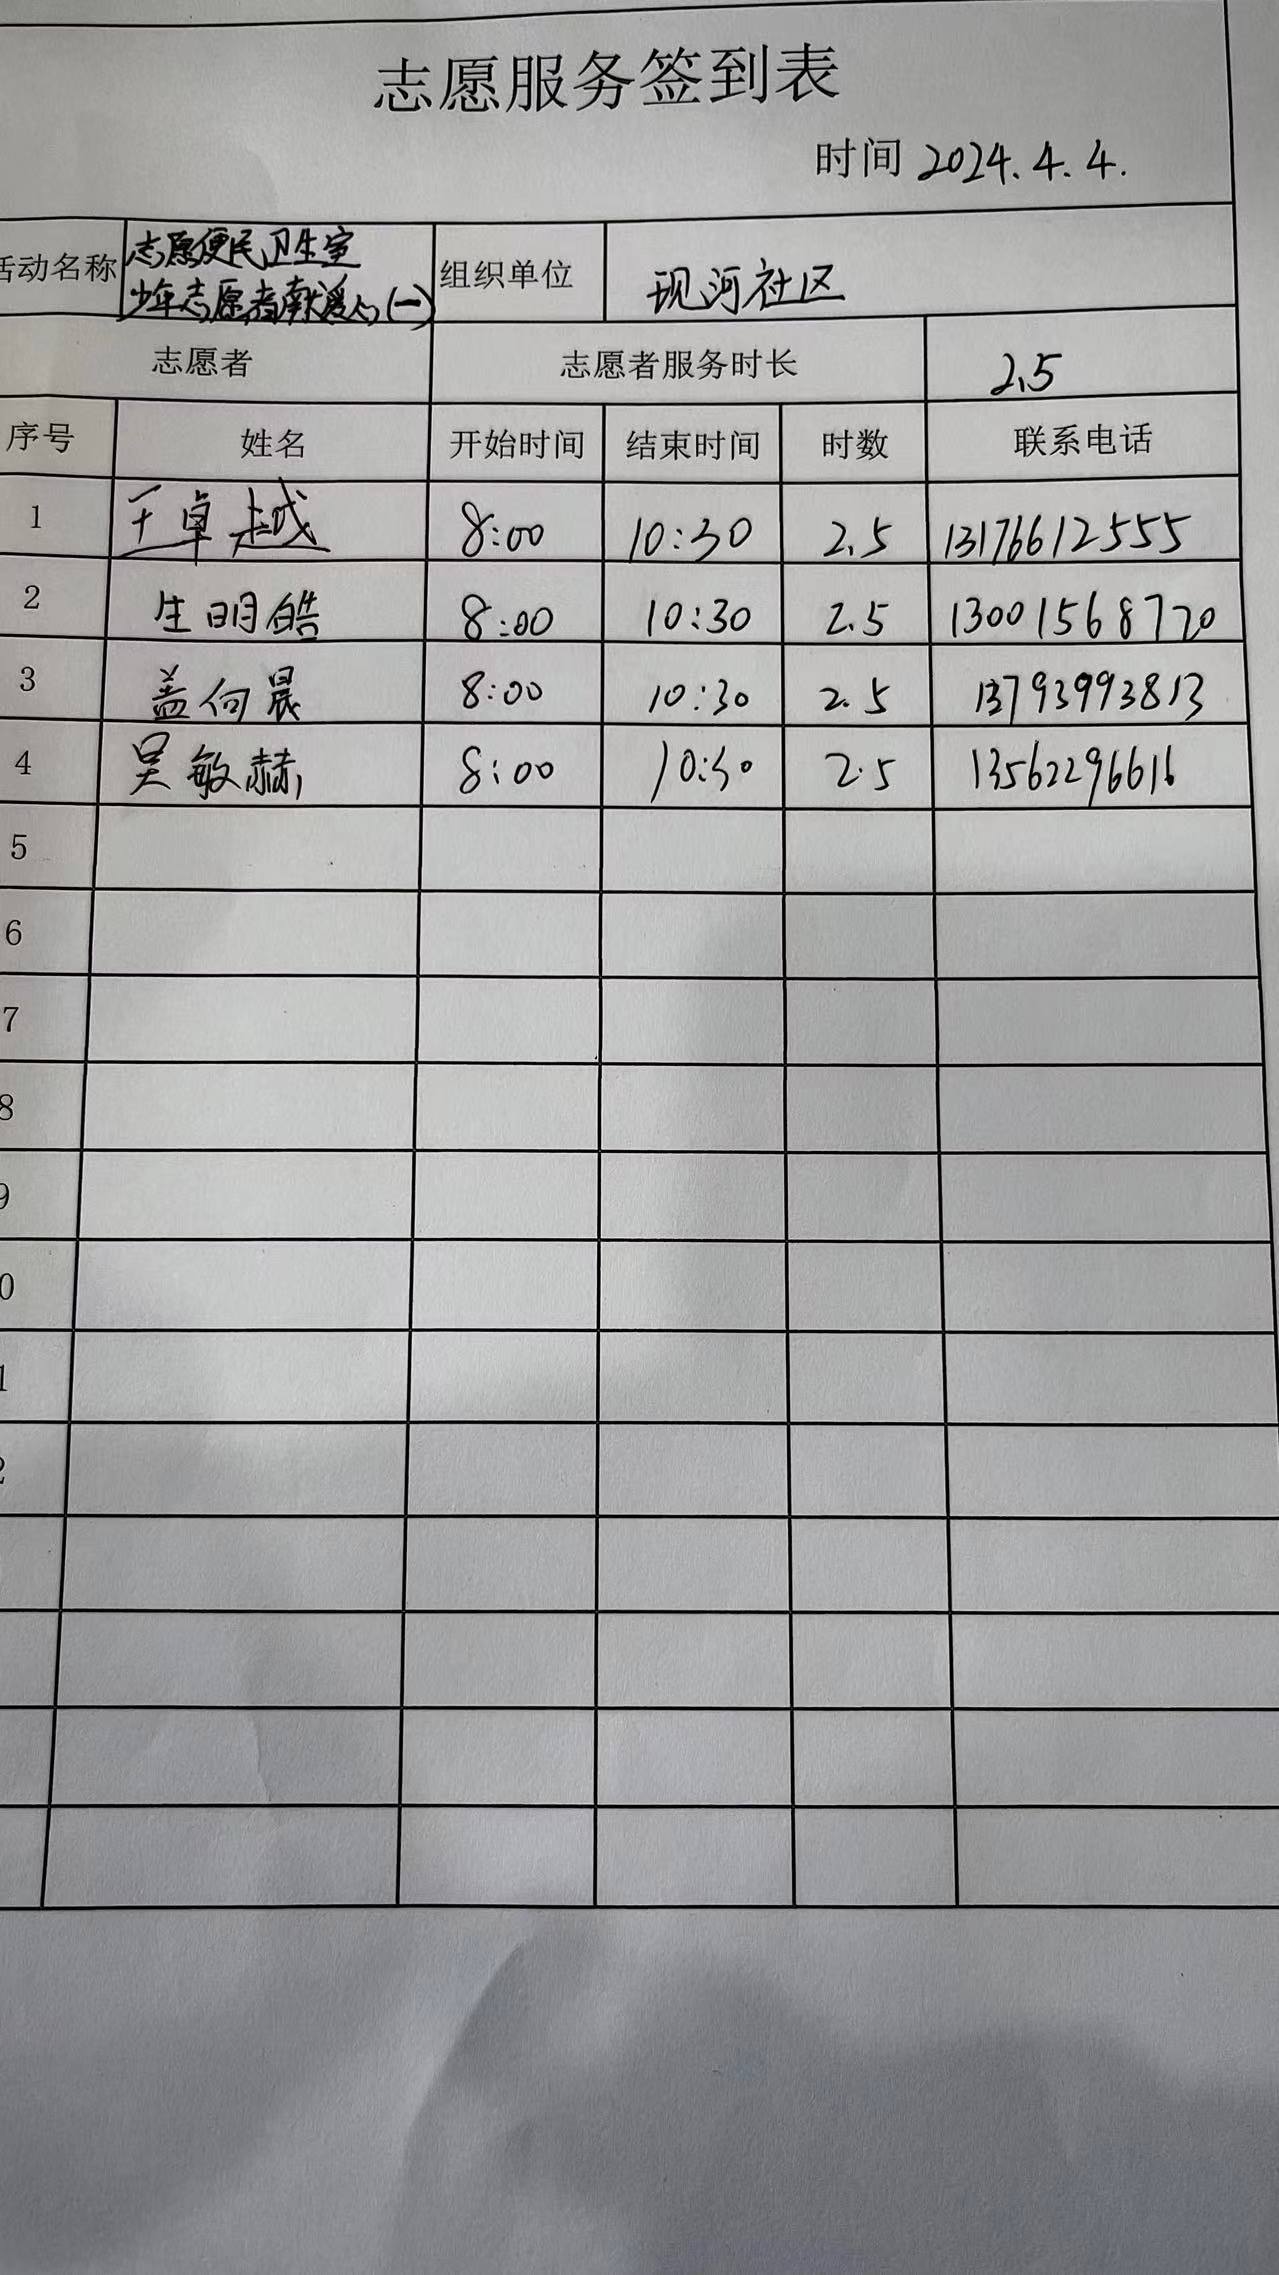 志愿服务签到表
时间 2024.4.4.
活动名称 志愿便民卫生室 组织单位 现河社区
少年志愿者献爱心(一)
志愿者 志愿者服务时长 2.5
序号 姓名 开始时间 结束时间 时数 联系电话
1 卓越 8:00 10:30 2.5 13176612555
2 生明皓 8:00 10:30 2.5 13001568770
3 盖向晨 8:00 10:30 2.5 13793993813
4 吴敏赫 8:00 10:30 2.5 13562296616
5
6
7
8
9
0
1
2